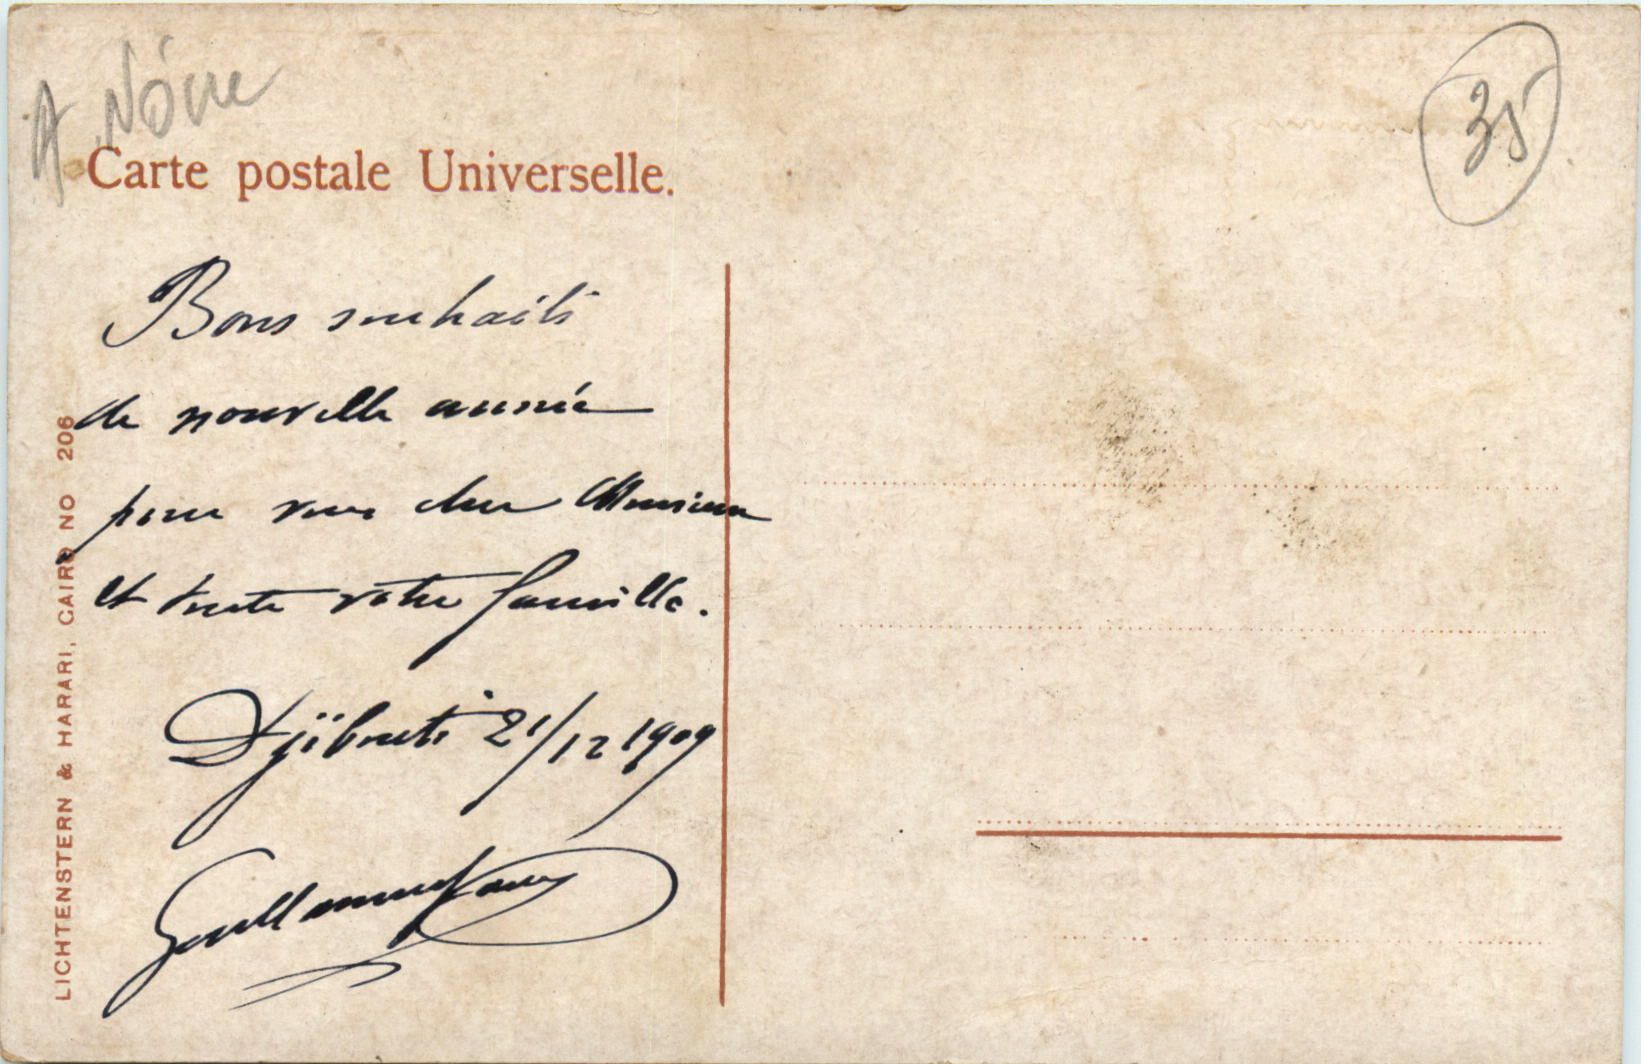 A
35
Carte postale Universelle.
Bons souhaits
de nouvelle année
pour vous cher Monsieur
et toute votre famille.
Djïbouti 21/12 1909
LICHTENSTERN & HARARI, CAIRO NO 206